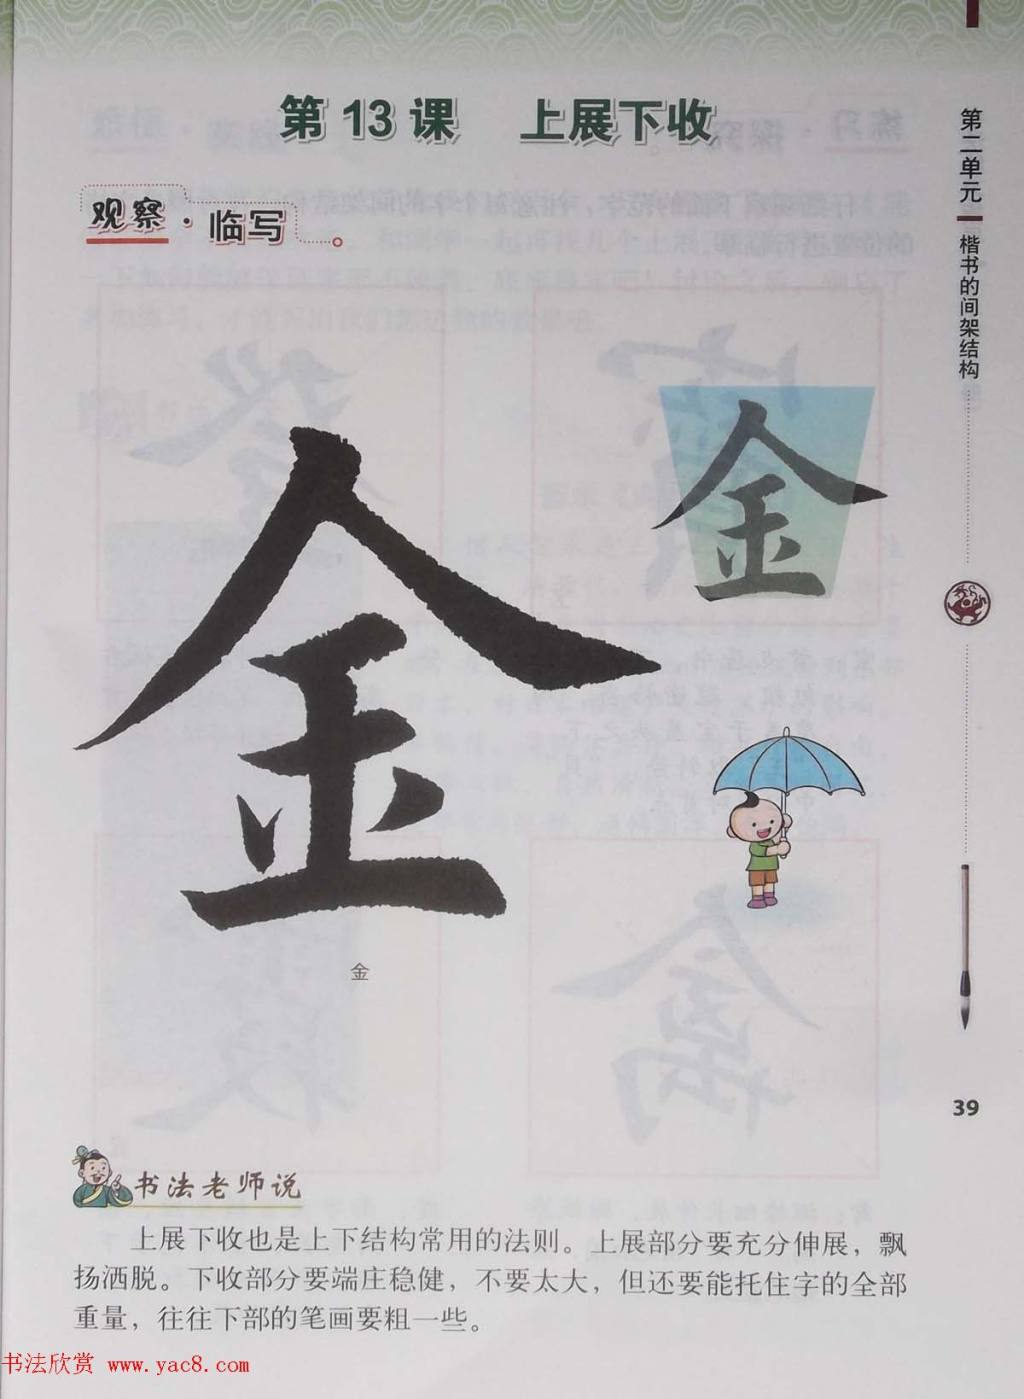 第13课 上展下收
观察·临写。
第二单元 楷书的间架结构
金
金
金
39
书法老师说
上展下收也是上下结构常用的法则。上展部分要充分伸展，飘
扬洒脱。下收部分要端庄稳健，不要太大，但还要能托住字的全部
重量，往往下部的笔画要粗一些。
书法欣赏 www.yac8.com